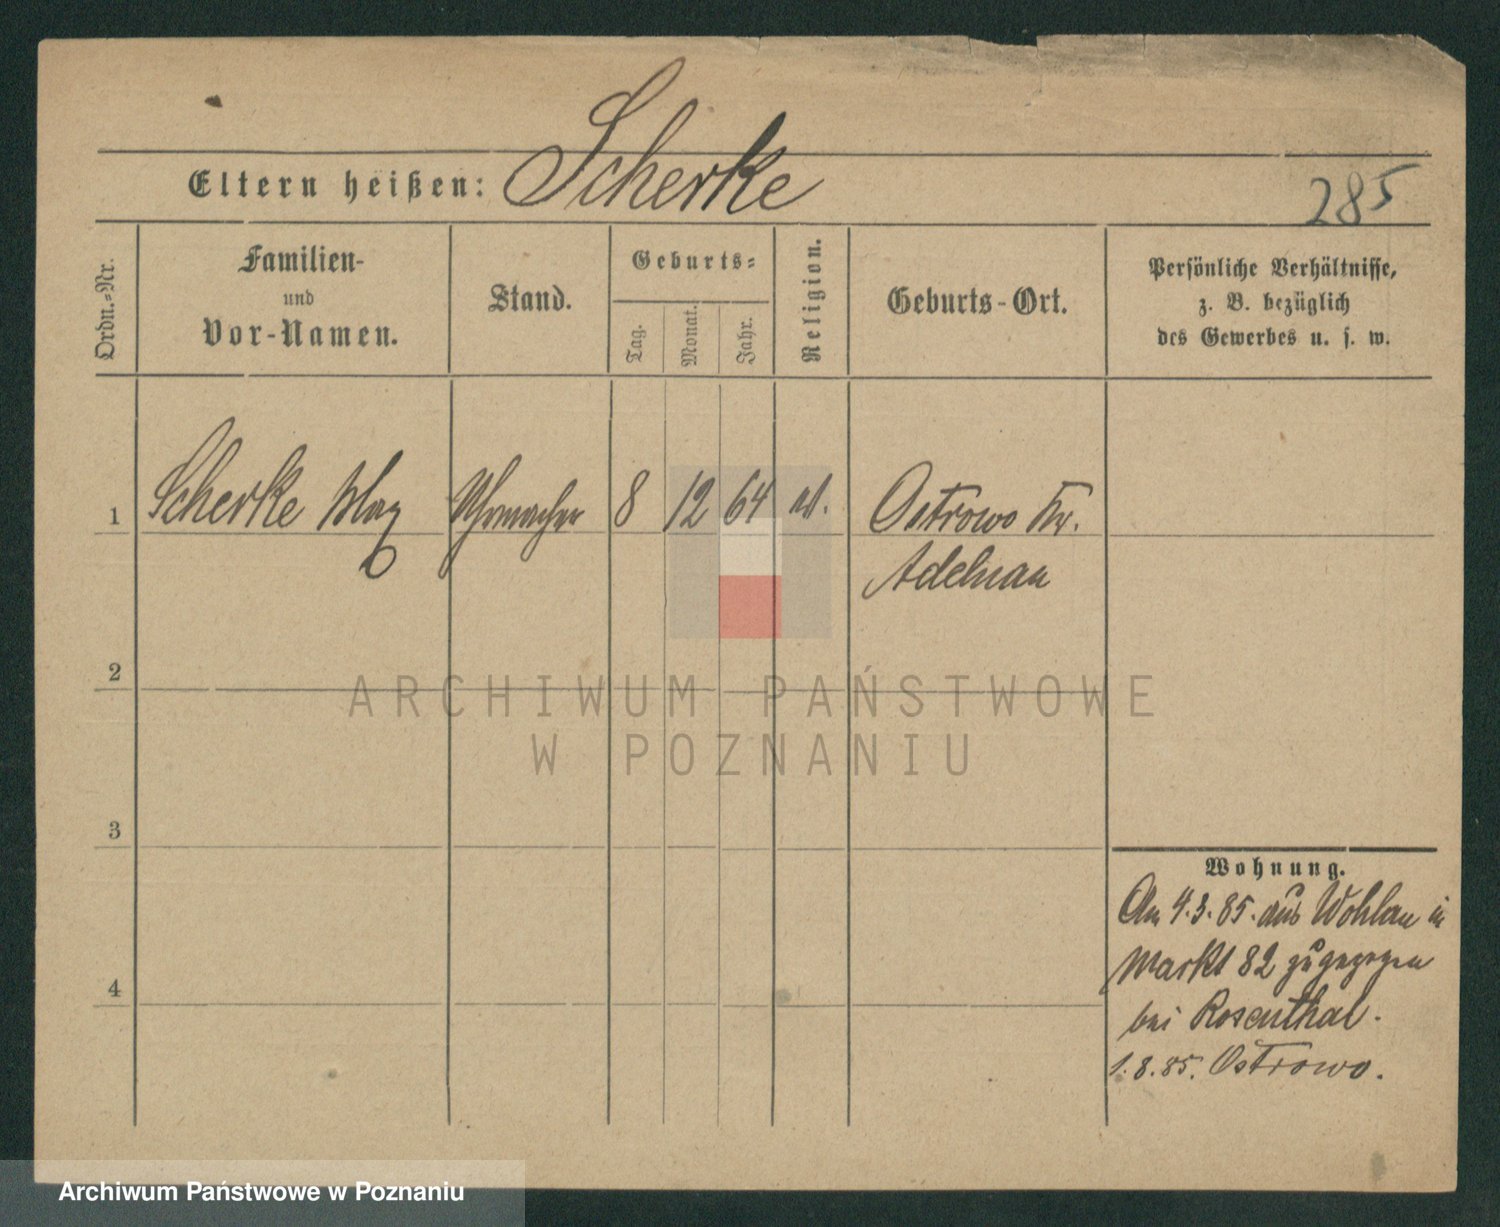 Scherke
Eltern heißen:
285
Ordn.=Nr.
Familien-
und
Vor-Namen.
Stand.
Geburts=
Tag.
Monat.
Jahr.
Religion.
Geburts-Ort.
Persönliche Verhältnisse,
z. B. bezüglich
des Gewerbes u. s. w.
1
Scherke Max
Uhrmacher
8
12
64
Ostrowo Kr.
Adelnau
2
ARCHIWUM PAŃSTWOWE
W POZNANIU
3
4
Wohnung.
Am 4.3.85. aus Wohlau in
Markt 82 zugezogen
bei Rosenthal.
1.8.85. Ostrowo.
Archiwum Państwowe w Poznaniu